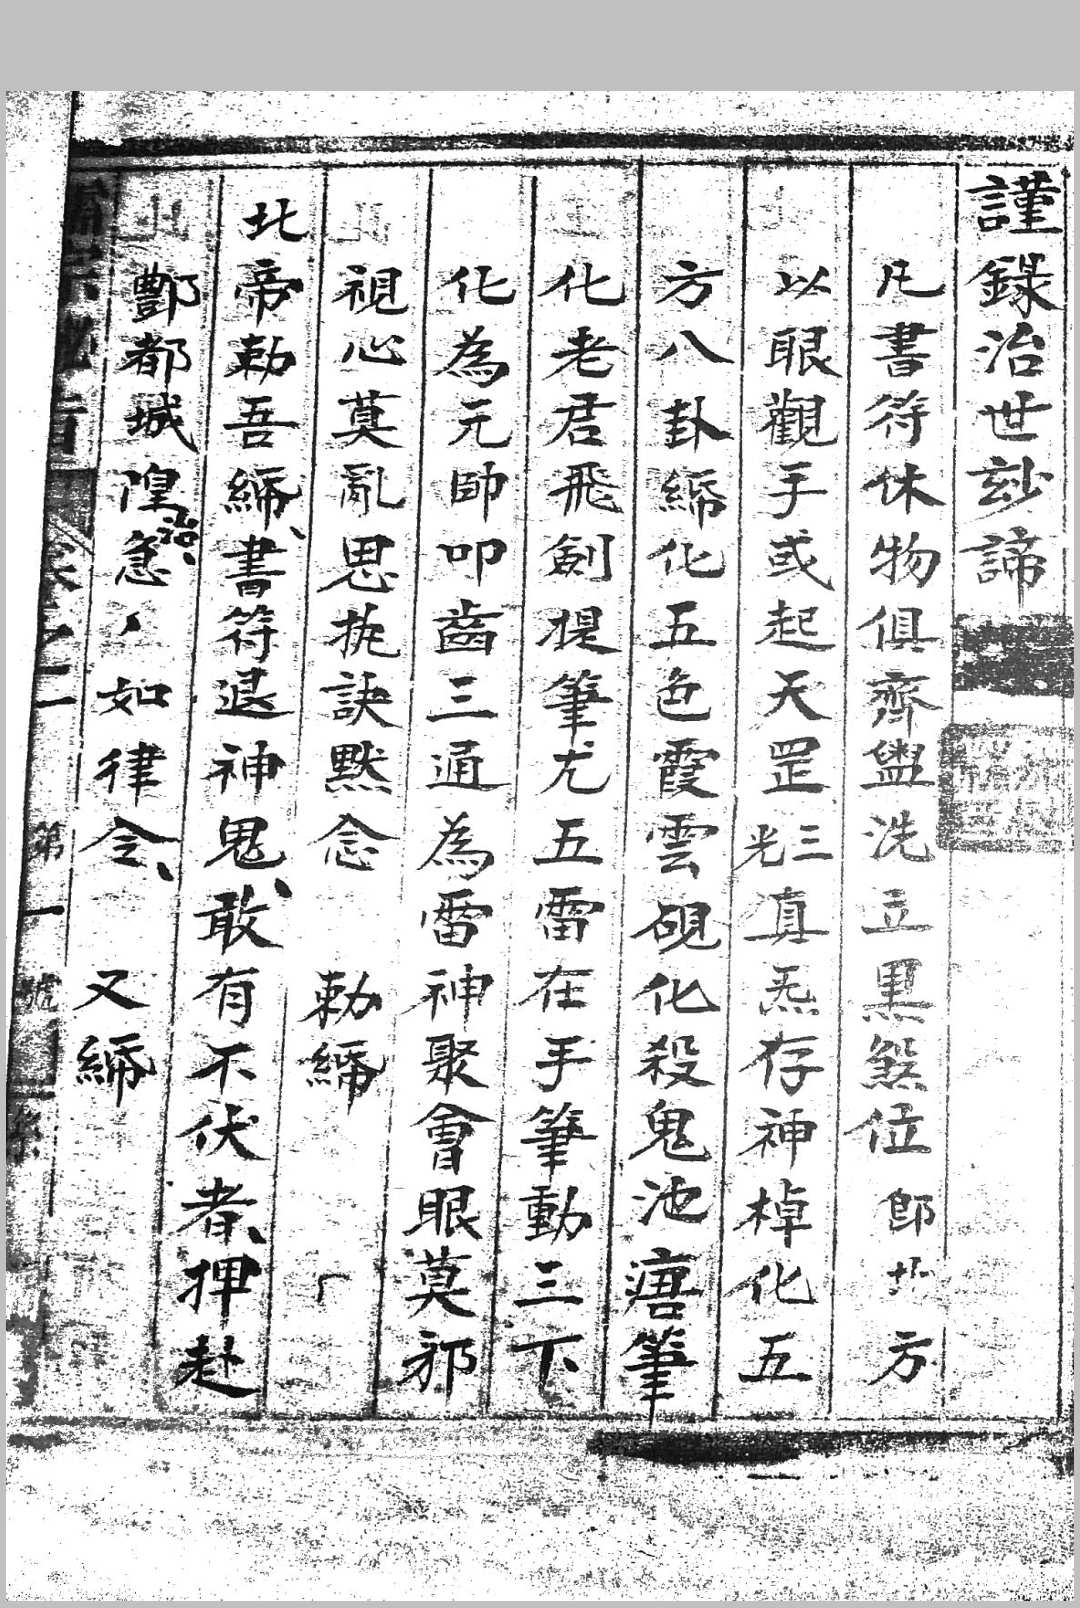 謹錄治世玅諦
凡書符休物俱齊盥洗立黑煞位即 方
以眼觀手或起天罡三光真炁存神棹化五
方八卦締化五色霞雲硯化殺鬼池唐筆
化老君飛劍提筆尤五雷在手筆動三下
化為元帥叩齒三通為雷神聚會眼莫邪
視心莫亂思捤訣黙念 勅締
北帝勅吾締書符退神鬼敢有不伏者押赴
酆都城隍急〻如律令 又締
卷之二 第一號